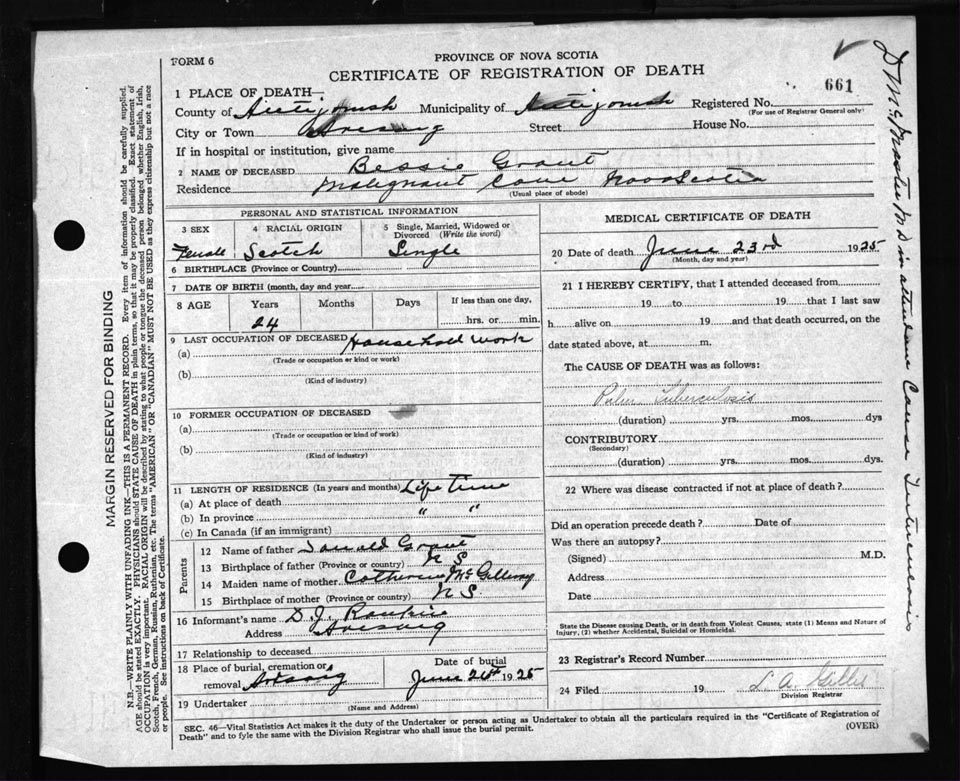 FORM 6
PROVINCE OF NOVA SCOTIA
CERTIFICATE OF REGISTRATION OF DEATH
661
1 PLACE OF DEATH—
County of Antigonish Municipality of Antigonish Registered No.
(For use of Registrar General only)
City or Town Arisaig Street House No.
If in hospital or institution, give name
2 NAME OF DECEASED Bessie Grant
Residence Malignant Cove Nova Scotia
(Usual place of abode)
PERSONAL AND STATISTICAL INFORMATION
3 SEX 4 RACIAL ORIGIN 5 Single, Married, Widowed or Divorced (Write the word)
Female Scotch Single
6 BIRTHPLACE (Province or Country)
7 DATE OF BIRTH (month, day and year)
8 AGE Years Months Days If less than one day,
24 hrs. or min.
9 LAST OCCUPATION OF DECEASED Household work
(a)
(Trade or occupation or kind or work)
(b)
(Kind of industry)
10 FORMER OCCUPATION OF DECEASED
(a)
(Trade or occupation or kind of work)
(b)
(Kind of industry)
11 LENGTH OF RESIDENCE (In years and months) Life time
(a) At place of death
(b) In province " "
(c) In Canada (if an immigrant)
Parents
12 Name of father Donald Grant
13 Birthplace of father (Province or country) N S
14 Maiden name of mother Catherine McGillivray
15 Birthplace of mother (Province or country) N S
16 Informant's name D. J. Rankin
Address Arisaig
17 Relationship to deceased
18 Place of burial, cremation or removal Arisaig
Date of burial
June 26th 1925
19 Undertaker
(Name and Address)
MEDICAL CERTIFICATE OF DEATH
20 Date of death June 23rd 1925
(Month, day and year)
21 I HEREBY CERTIFY, that I attended deceased from
19 to 19 that I last saw
h alive on 19 and that death occurred, on the
date stated above, at m.
The CAUSE OF DEATH was as follows:
Pulm. Tuberculosis
(duration) yrs. mos. dys
CONTRIBUTORY
(Secondary)
(duration) yrs. mos. dys.
22 Where was disease contracted if not at place of death?
Did an operation precede death? Date of
Was there an autopsy?
(Signed) M.D.
Address
Date
State the Disease causing Death, or in death from Violent Causes, state (1) Means and Nature of
Injury, (2) whether Accidental, Suicidal or Homicidal.
23 Registrar's Record Number
24 Filed 19 L. A. Gillis
Division Registrar
SEC. 46—Vital Statistics Act makes it the duty of the Undertaker or person acting as Undertaker to obtain all the particulars required in the "Certificate of Registration of
Death" and to fyle the same with the Division Registrar who shall issue the burial permit.
(OVER)
MARGIN RESERVED FOR BINDING
N.B.—WRITE PLAINLY WITH UNFADING INK—THIS IS A PERMANENT RECORD. Every item of information should be carefully supplied.
AGE should be stated EXACTLY. PHYSICIANS should STATE CAUSE OF DEATH in plain terms, so that it may be properly classified. Exact statement of
OCCUPATION is very important. RACIAL ORIGIN will be described by stating to what people or tongue the deceased person belonged whether English, Irish,
Scotch, French, German, Russian, Ruthenian, etc. The terms "AMERICAN" OR "CANADIAN" MUST NOT BE USED as they express citizenship but not a race
or people. See instructions on back of Certificate.
McMaster M D in attendance Cause Tuberculosis